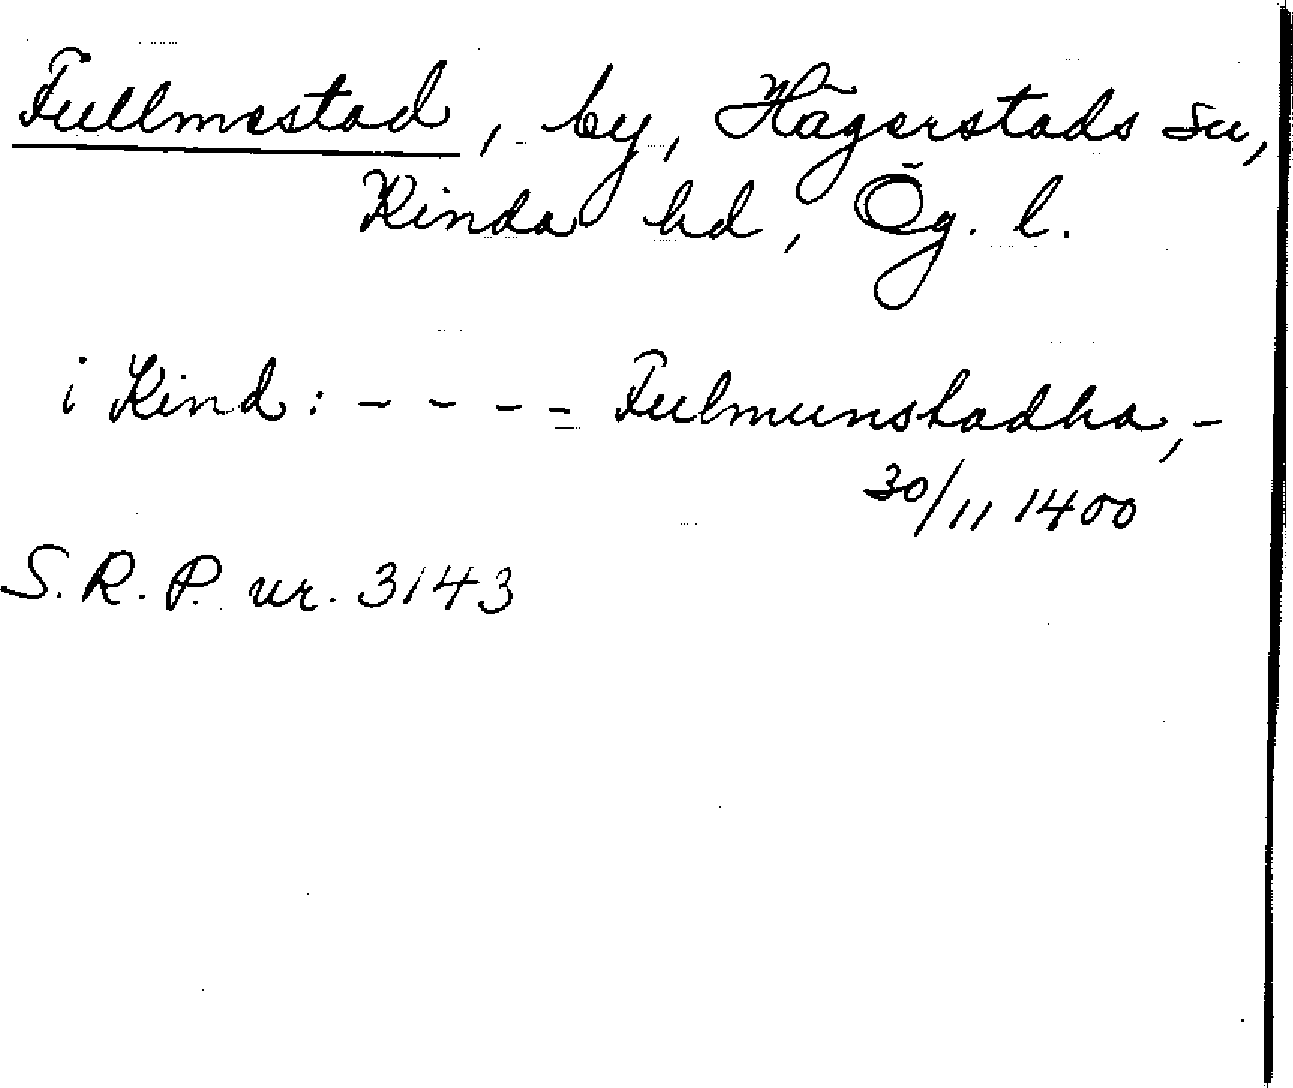 Fullmestad, by, Hägerstads sn,
Kinda hd, Ög. l.
i Kind: - - - - Fulmunstadha, -
30/11 1400
S.R.P. nr. 3143